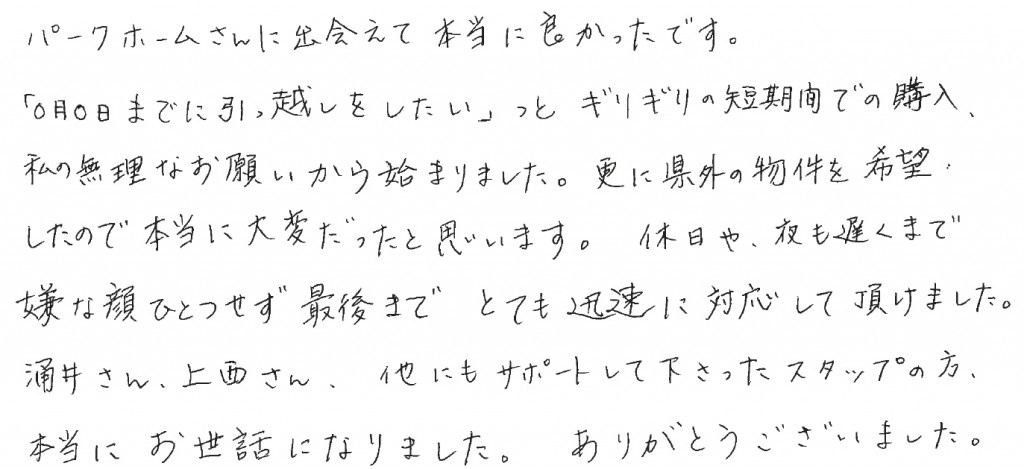 パークホームさんに出会えて本当に良かったです。
「〇月〇日までに引っ越しをしたい」っと ギリギリの短期間での購入、
私の無理なお願いから始まりました。更に県外の物件を希望
したので本当に大変だったと思います。 休日や、夜も遅くまで
嫌な顔ひとつせず 最後まで とても迅速に対応して頂けました。
涌井さん、上西さん、他にもサポートして下さったスタップの方、
本当に お世話になりました。 ありがとうございました。